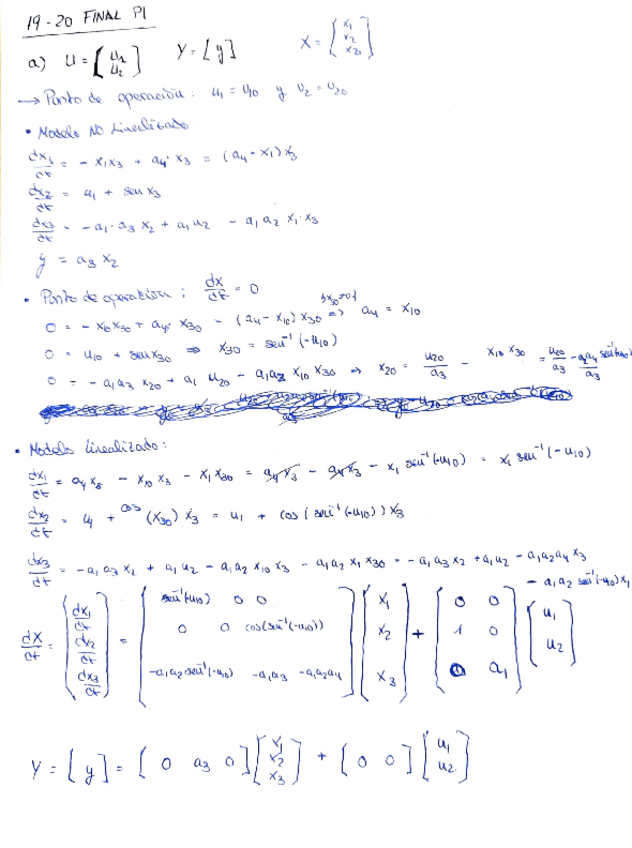 19-20 FINAL P1
a) U = [u1 u2] Y = [y] X = [x1 x2 x3]
→ Punto de operación: u1 = u10 y u2 = u20
• Modelo NO Linealizado
dx1/dt = - x1x3 + a4· x3 = (a4 - x1) x3
dx2/dt = u1 + sen x3
dx3/dt = -a1·a3 x2 + a1 u2 - a1 a2 x1·x3
y = a3 x2
• Punto de operación: dx/dt = 0
0 = - x10x30 + a4· x30 - (a4 - x10) x30 ⇒ a4 = x10
0 = u10 + sen x30 ⇒ x30 = sen⁻¹(-u10)
0 = - a1a3 x20 + a1 u20 - a1a2 x10 x30 ⇒ x20 = u20/a3 - x10 x30 = u20/a3 - a2a4 sen⁻¹(-u10)/a3
• Modelo Linealizado:
dx1/dt = a4 x3 - x10 x3 - x1 x30 = a4 x3 - a4 x3 - x1 sen⁻¹(-u10) = x1 sen⁻¹(-u10)
dx2/dt = u1 + cos (x30) x3 = u1 + cos(sen⁻¹(-u10)) x3
dx3/dt = -a1 a3 x2 + a1 u2 - a1 a2 x10 x3 - a1 a2 x1 x30 = -a1 a3 x2 + a1 u2 - a1a2a4 x3
- a1 a2 sen⁻¹(-u10) x1
dX/dt = (dx1/dt dx2/dt dx3/dt) = [sen⁻¹(u10) 0 0
0 0 cos(sen⁻¹(-u10))
-a1a2 sen⁻¹(-u10) -a1a3 -a1a2a4] [x1 x2 x3] + [0 0
1 0
0 a1] [u1 u2]
Y = [y] = [0 a3 0] [x1 x2 x3] + [0 0] [u1 u2]